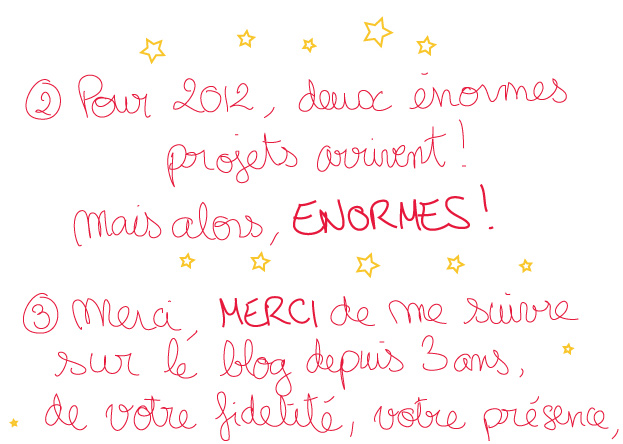 ② Pour 2012, deux énormes
projets arrivent !
Mais alors, ENORMES !
③ Merci, MERCI de me suivre
sur le blog depuis 3 ans,
de votre fidelité, votre présence,